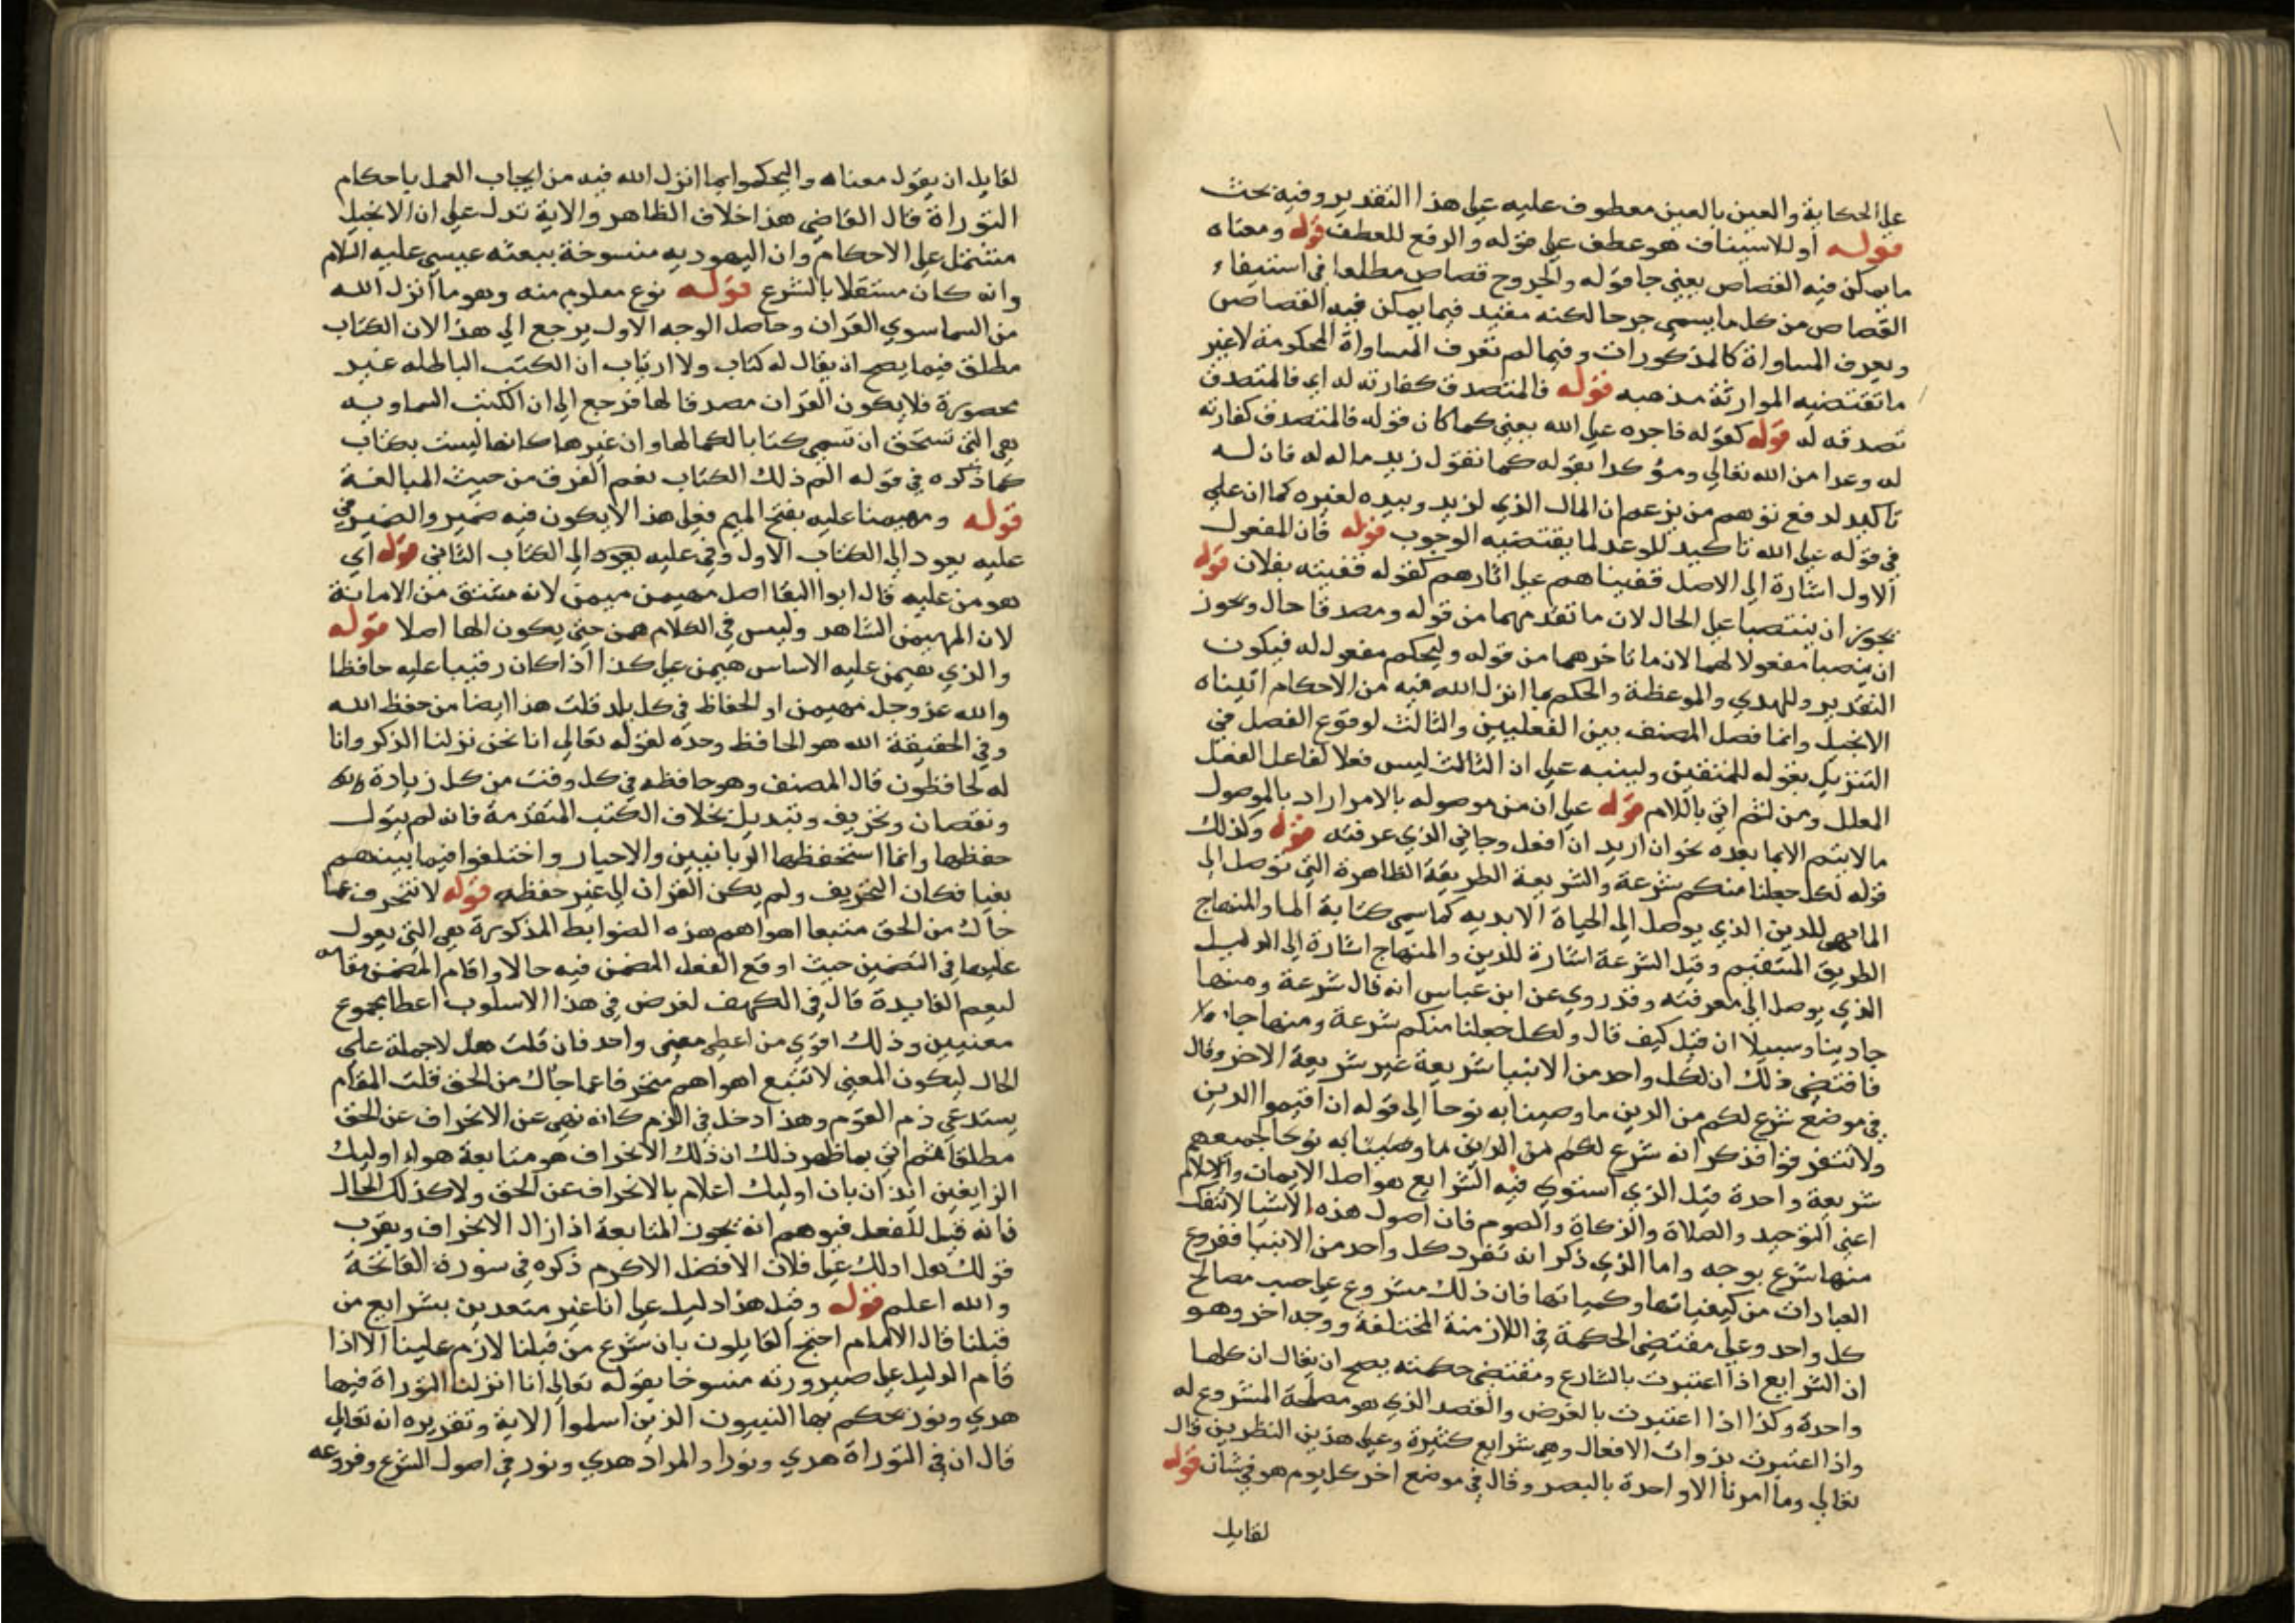 على الحكاية والعين بالعين معطوف عليه على هذا التقدير وفيه بحث
قوله او للاسيناف هو عطف على قوله والرفع للعطف قوله ومعناه
ما يمكن فيه القصاص يعني جا قوله والجروح قصاص مطلعا في استيفاء
القصاص من كل ما يسمى جرحا لكنه مقيد فيما يمكن فيه القصاص
ويعرف المساواة كالمذكورات وفيما لم تعرف المساواة الحكومة لا غير
ما تقتضيه الموارثة مذهبه قوله فالمتصدق كفارته له اي فالمتصدق
تصدقه له قوله كقوله فاجره على الله يعني كما كان قوله فالمتصدق كفارته
له وعدا من الله تعالى ومؤكدا بقوله كما تقول زيد ماله له فان له
تاكيد لدفع توهم من يزعم ان المال الذي لزيد وبيده لغيره كما ان على
في قوله على الله تاكيد للوعد لما يقتضيه الوجوب قوله فان المفعول
الاول اشارة الى الاصل قفيناهم على اثارهم كقوله قفيته بفلان قوله
يجوز ان ينتصبا على الحال لان ما تقدمهما من قوله ومصدقا حال ويجوز
ان ينصبا مفعولا لهما لان ما تاخرهما من قوله وليحكم مفعول له فيكون
التقدير وللهدي والموعظة والحكم بما انزل الله فيه من الاحكام اتيناه
الانجيل وانما فصل المصنف بين الفعليين والثالث لوقوع الفصل في
التنزيل بقوله للمتقين ولينبه على ان الثالث ليس فعلا لفاعل الفعل
المعلل ومن لثم اتي باللام قوله على ان من موصوله بالامر اراد بالموصول
ما لا يتم الا بما بعده نحو ان اريد ان افعل وجاني الذي عرفته قوله ولذلك
قوله لكل جعلنا منكم شرعة والشريعة الطريقة الظاهرة التي توصل الى
الما فهي للدين الذي يوصل الى الحياة الابديه كما سمي كناية الما والمنهاج
الطريق المستقيم وقيل الشرعة اشارة للدين والمنهاج اشارة الى الدليل
الذي يوصل الى معرفته وقد روي عن ابن عباس انه قال شرعة ومنهاجا
دينا وسبيلا ان قيل كيف قال ولكل جعلنا منكم شرعة ومنهاجا
فاقتضى ذلك ان لكل واحد من الانبيا شريعة غير شريعة الاخر وقال
في موضع شرع لكم من الدين ما وصينا به نوحا الى قوله ان اقيموا الدين
ولا تتفرقوا فذكر انه شرع لكم من الدين ما وصينا به نوحا لجميعهم
شريعة واحدة قيل الذي استوي فيه الشرايع هو اصل الايمان والاسلام
اعني التوحيد والصلاة والزكاة والصوم فان اصول هذه الاشيا لا تنفك
منها شرع بوجه واما الذي ذكر انه تفرد كل واحد من الانبيا ففروع
العبادات من كيفياتها وكمياتها فان ذلك مشروع على حسب مصالح
كل واحد وعلى مقتضى الحكمة في اللازمنة المختلفة ووجه اخر وهو
ان الشرايع اذا اعتبرت بالشارع ومقتضى حكمته يصح ان يقال ان كلها
واحدة وكذا اذا اعتبرت بالغرض والقصد الذي هو مصلحة المشروع له
واذا اعتبرت بذوات الافعال وهي شرايع كثيرة وعلى هذين النظرين قال
تعالى وما امرنا الا واحدة بالبصر وقال في موضع اخر كل يوم هو في شان قوله
لقايل
لقايل ان يقول معناه وليحكموا بما انزل الله فيه من ايجاب العمل باحكام
التوراة قال القاضي هذا خلاف الظاهر والاية تدل على ان الانجيل
مشتمل على الاحكام وان اليهوديه منسوخة ببعثه عيسى عليه السلام
وانه كان مستقلا بالشرع قوله نوع معلوم منه وهو ما انزل الله
من السما سوي القران وحاصل الوجه الاول يرجع الى هذا لان الكتاب
مطلق فيما يصح ان يقال له كتاب ولا ارتياب ان الكتب الباطله غير
محصورة فلا يكون القران مصدقا لها فرجع الى ان الكتب السماويه
هي التي تستحق ان تسمى كتابا لكمالها وان غيرها كانها ليست بكتاب
كما ذكره في قوله الم ذلك الكتاب نعم الفرق من حيث المبالغة
قوله ومهيمنا عليه بفتح الميم فعلى هذا لا يكون فيه ضمير والضمير في
عليه يعود الى الكتاب الاول وفي عليه يعود الى الكتاب الثاني قوله اي
هو من عليه قال ابوا البقا اصل مهيمن ميمن لانه مشتق من الامانة
لان المهيمن الشاهد وليس في الكلام همن حتى يكون الها اصلا قوله
والذي هيمن عليه الاساس هيمن على كذا اذا كان رقيبا عليه حافظا
والله عز وجل مهيمن او الحفاظ في كل بلد قلت هذا ايضا من حفظ الله
وفي الحقيقة الله هو الحافظ وحده لقوله تعالى انا نحن نزلنا الذكر وانا
له لحافظون قال المصنف وهو حافظه في كل وقت من كل زيادة
ونقصان وتحريف وتبديل بخلاف الكتب المتقدمة فانه لم يتول
حفظها وانما استحفظها الربانيين والاحبار واختلفوا فيما بينهم
بغيا فكان التحريف ولم يكن القران الى غير حفظه قوله لا تنحرف عما
جاك من الحق متبعا اهواهم هذه الضوابط المذكورة هي التي يعول
عليها في التضمين حيث اوقع الفعل المضمن فيه حالا واقام المضمن مقامه
ليعم الفايدة قال في الكهف لغرض في هذا الاسلوب اعطا مجموع
معنيين وذلك اقوي من اعطى معنى واحد فان قلت هل لا جملة على
الحال ليكون المعني لا تتبع اهواهم منحرفا عما جاك من الحق قلت المقام
يستدعي ذم القوم وهذا ادخل في الزم كانه نهي عن الانحراف عن الحق
مطلقا ثم اتي بما ظهر ذلك ان ذلك الانحراف هو متابعة هواء اوليك
الزايفين ايذان بان اوليك اعلام بالانحراف عن الحق ولا كذلك الحال
فانه قيل للفعل فيوهم انه يجون المتابعة اذا زال الانحراف ويقرب
قولك هل ادلك على فلان الافضل الاكرم ذكره في سورة الفاتحة
والله اعلم قوله وقيل هذا دليل على انا غير متعدين بشرايع من
قبلنا قال الامام احتج القايلون بان شرع من قبلنا لازم علينا الا اذا
قام الدليل على صيرورته منسوخا بقوله تعالى انا انزلنا التوراة فيها
هدي ونور يحكم بها النبيون الذين اسلموا الاية وتقريره انه تعالى
قال ان في التوراة هدي ونورا والمراد هدي ونور في اصول الشرع وفروعه